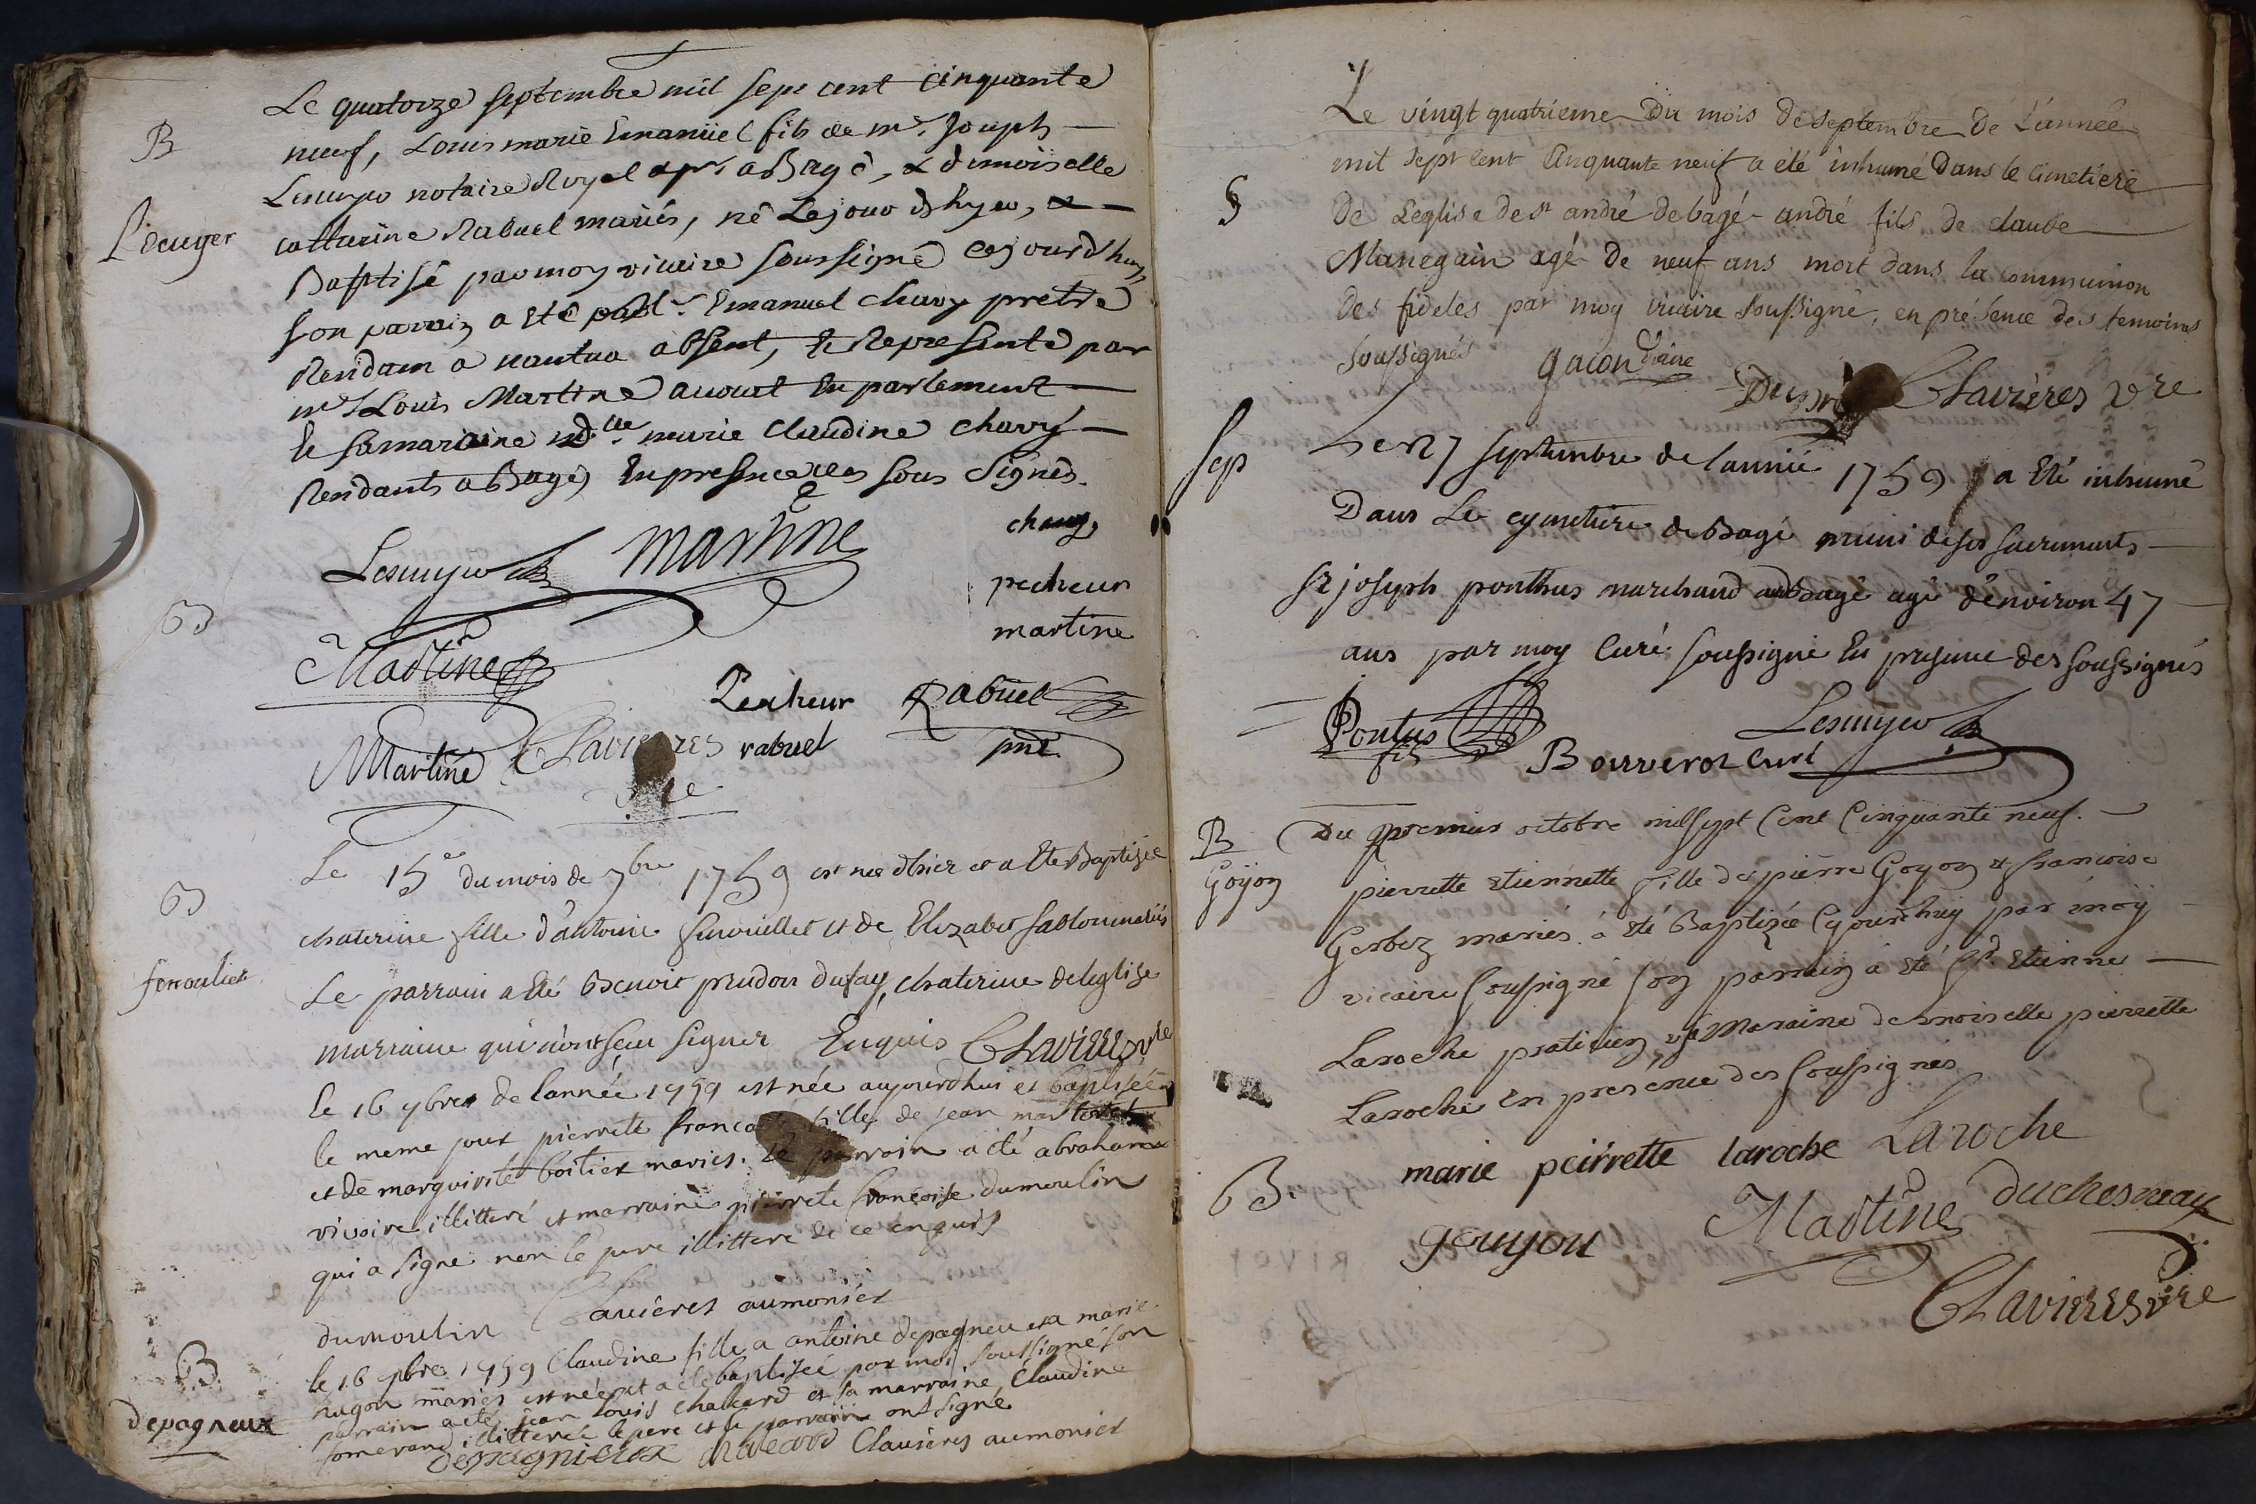 Le quatorze septembre mil sept cent cinquante
B
neuf, Louis marie Emanuel fils de mr. Joseph
notaire Royal à Bagé, & demoiselle
catherine Rabuel mariés, né Le jour d'hyer, &
Baptisé par moy vicaire soussigné cejourd'huy
son parain a eté Emanuel Chavy pretre
Residant a nantua absent, & Representé par
mr Louis Martine avocat En parlement
& sa maraine marie Claudine Chavy
Residants a Bagé, En presence des sous Signés.
chavy
martine
pecheur
martine
Martine
Pecheur Rabuel
Martine Chavieres rabuel
vre
B
Le 15e du mois de 7bre 1759 est née d'hier et a Eté Baptizée
chaterine fille d'antoine et de Elizabet mariés
Le parrain a Eté Benoit prudon dufay, chaterine deleglise
marraine qui n'ont sceu signer Enquis Chavieres vre
le 16 7bre de lannée 1759 est née aujourdhui et baptisée
le meme jour pierrete fille de jean
et de marguirite boitier mariés. Le parrain a eté abraham
illitteré et marraine pierrete francoise dumoulin
qui a signé non le pere illittere de ce enquis
dumoulin Clavieres aumonier
B
depagneux
le 16 7bre 1759 Claudine fille a antoine depagneu et a marie
nugon mariés est née et a eté baptisée par moi soussigné son
parrain a eté jean louis chaleard et sa marraine Claudine
illitterée le pere et le parrain ont signé
depagnieux chaleard Clavieres aumonier
Le vingt quatrieme Du mois de septembre de L'année
mil sept Cent Cinquante neuf a été inhumé Dans le Cimetiere
S
De L'eglise de st andré de bagé andré fils de claude
Manegain agé de neuf ans mort dans la communion
des fideles par moy vicaire soussigné, en présence des temoins
soussignés gacon vicaire
Chavieres vre
Sep
Le 27 septembre de l'année 1759 a Eté inhumé
Dans Le cymetiere de Bagé muni de ses sacrements
Sr joseph ponthus marchand a Bagé agé d'environ 47
ans par moy Curé soussigné En presence des soussignés
Pontus
fils Bourverot Curé
B
Goÿon
Du premier octobre mil sept Cent Cinquante neuf.
pierrette Etiennette fille de pierre Goyon & francoise
Gerbez mariés à Eté Baptizée Cejourdhuy par moÿ
vicaire soussigné son parrain à été Sr. Etienne
Laroche praticien & sa Maraine demoiselle pierrette
Laroche En presence des soussignés
marie peirrette laroche Laroche
B.
gouyon Martine duchesneay
Chavieres vre